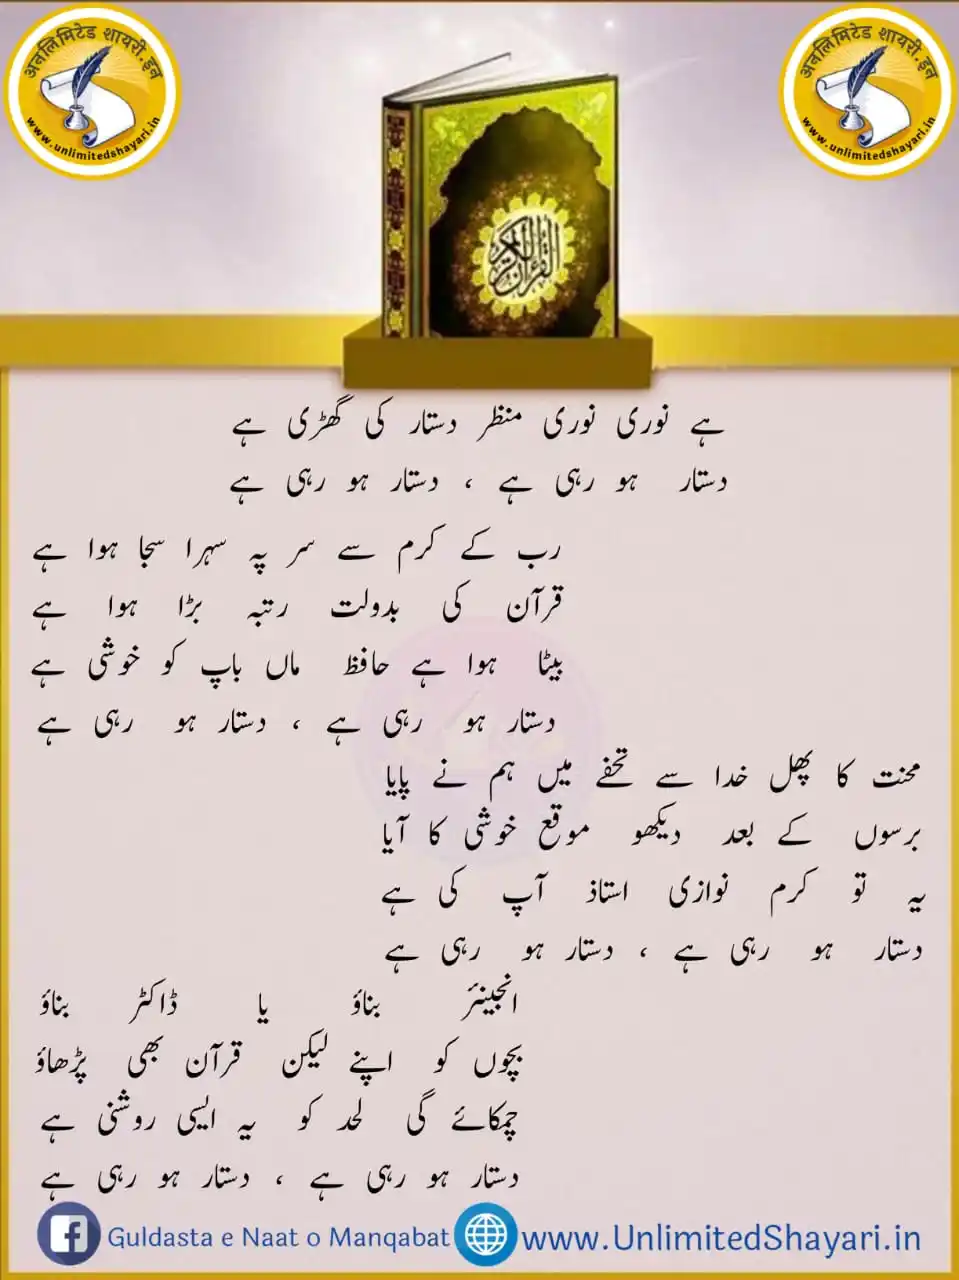 अनलिमिटेड शायरी.इन
www.unlimitedshayari.in
अनलिमिटेड शायरी.इन
www.unlimitedshayari.in
القرآن الكريم
ہے نوری نوری منظر دستار کی گھڑی ہے
دستار ہو رہی ہے ، دستار ہو رہی ہے
رب کے کرم سے سر پہ سہرا سجا ہوا ہے
قرآن کی بدولت رتبہ بڑا ہوا ہے
بیٹا ہوا ہے حافظ ماں باپ کو خوشی ہے
دستار ہو رہی ہے ، دستار ہو رہی ہے
محنت کا پھل خدا سے تحفے میں ہم نے پایا
برسوں کے بعد دیکھو موقع خوشی کا آیا
یہ تو کرم نوازی استاذ آپ کی ہے
دستار ہو رہی ہے ، دستار ہو رہی ہے
انجینئر بناؤ یا ڈاکٹر بناؤ
بچوں کو اپنے لیکن قرآن بھی پڑھاؤ
چمکائے گی لحد کو یہ ایسی روشنی ہے
دستار ہو رہی ہے ، دستار ہو رہی ہے
Guldasta e Naat o Manqabat
www.UnlimitedShayari.in